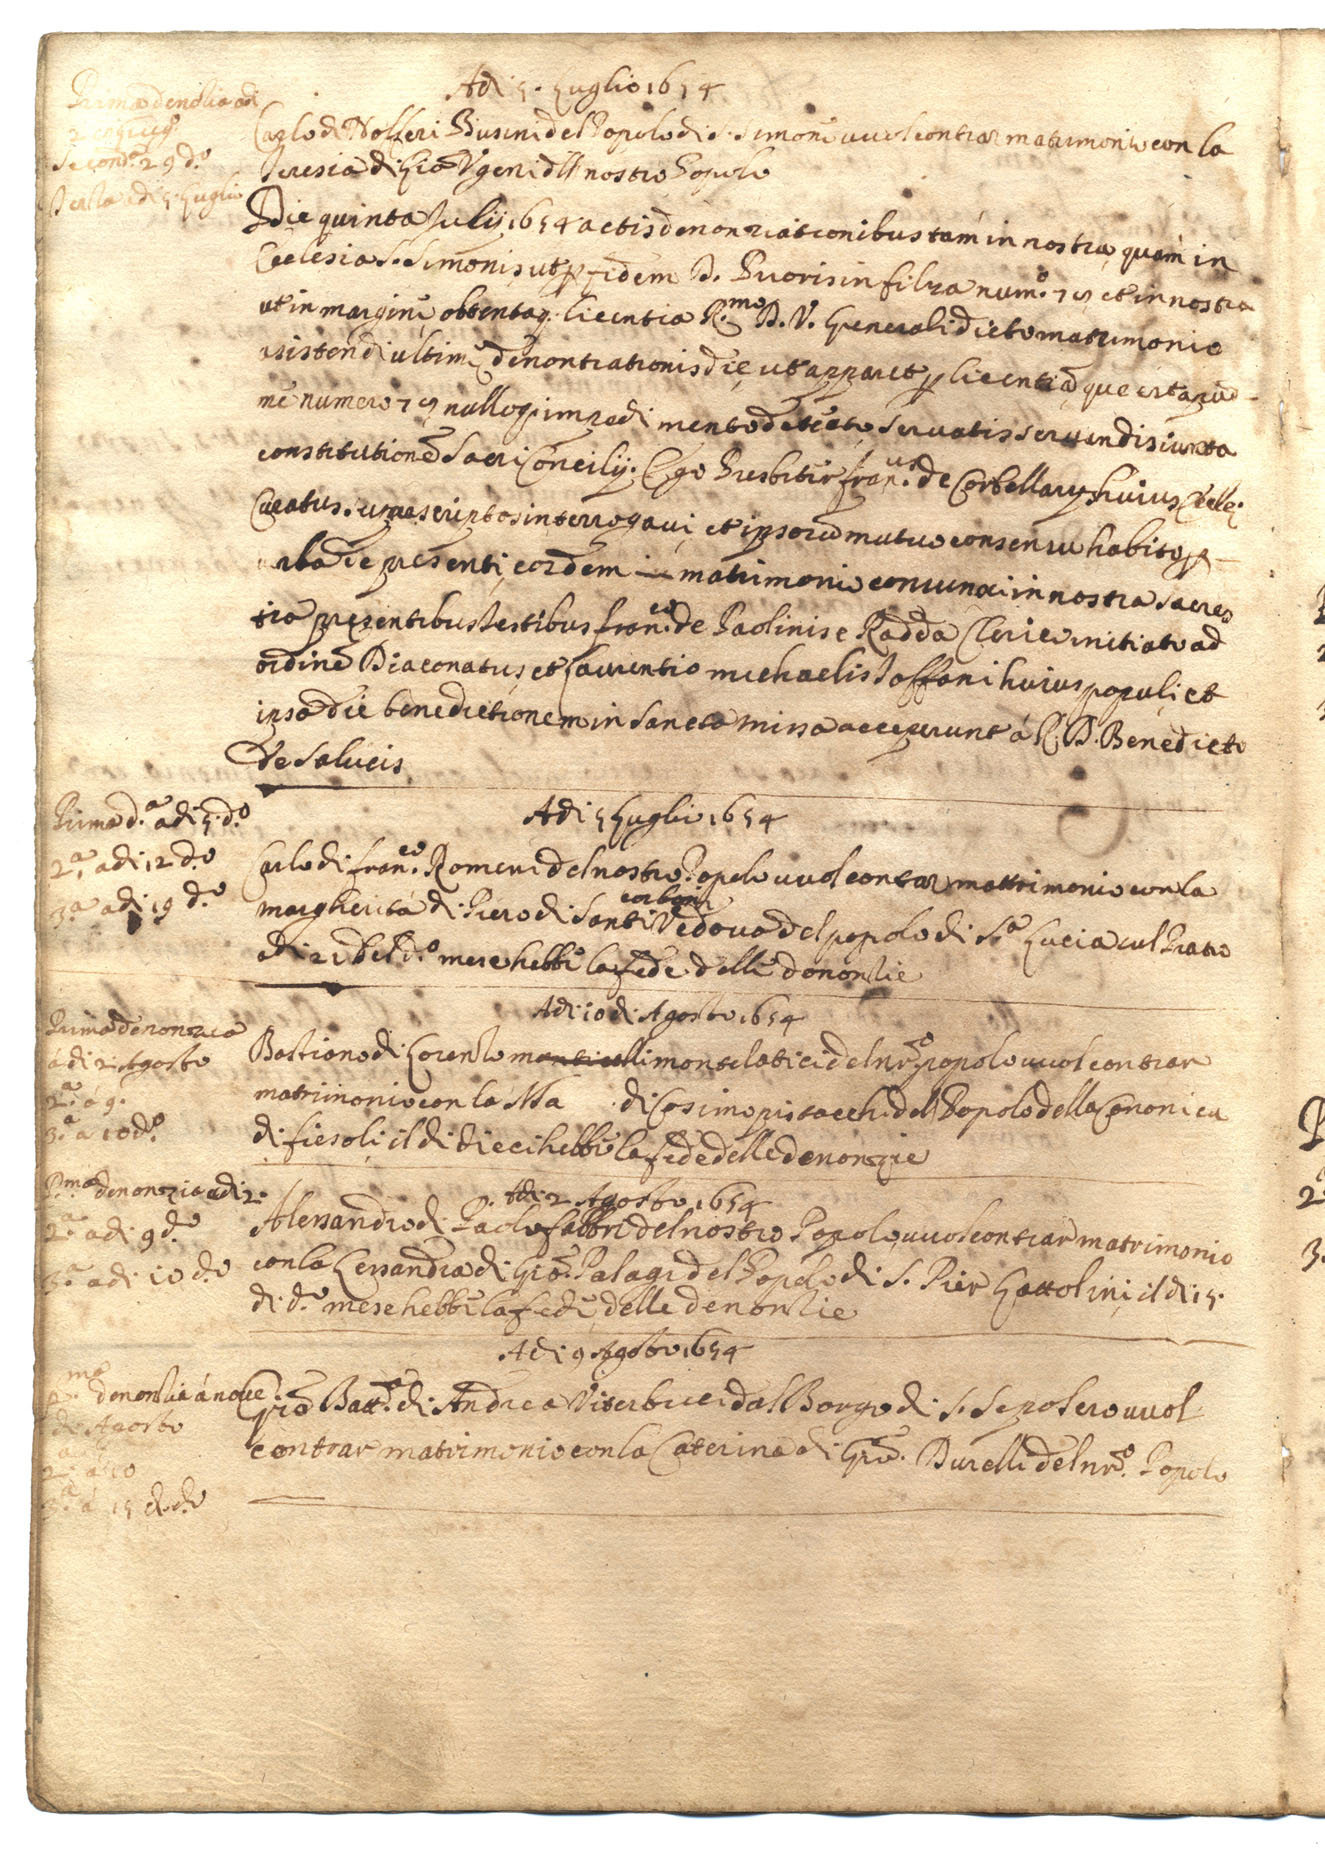 Adi 5. Luglio 1654
Prima denōlia adi
2
Secon.ª 29 d.º
Terza adi 5 Luglio
Carlo di Nofferi Businidel Popolo di S. Simone vuol contrar matrimonio con la
Teresia di Giō Vgeni dll nostro Popolo
Die quinta Julij 1654 actis denonziationibus tam in nostra, quam in
Ecclesia S. Simonis, ut p fidem D. Priorisin filza num.º 75 et in nostra
ut in margine obtentaq. licentia R.mo D. V. Generali dicto matrimonio
asistendi ultime denontiationis die, ut apparet p licentiā que est apud
me numero 75 nulloq impedimento detecto servatis servandis iuxta
constitutionē Sacri Concilij. Ego Presbiter fran.us de Corbellarys huius Eccle:
Curatus. supraescriptos interrogavi, et ipsorū mutuo consensu habito p
verba de presenti, eosdem in matrimonio coniunxi in nostra sacres
tia presentibus testibus fran.co de Paolinis e Radda Clerico initiato ad
ordinē Diaconatus, et Laurentio michaelis Toffani huius populi, et
ipsa die benedictionem in Sancta missa acceperunt á R. D. Benedicto
de Salucis
Adi 5 Luglio 1654
Prima d.ª adi 5. d.º
2.ª adi 12 d.º
3.ª adi 19 d.º
Carlo di fran.co Romeri del nostro Popolo vuol contrar mattrimonio con la
corboni
margherita di Piero di Santi Vedova del popolo di S.ª Lucia sul Prato
adi 21 del d.º mese hebbe la fede delle dononzie
Adi 10 di Agosto 1654
Prima denonzia
á di 2 Agosto
2.ª á 9.
3.ª á 10 d.º
Bastiano di Lorenzo monticelli montelatici del nr̄o popolo vuol contrar
matrimonio con la Ma di Cosimo pistacchi del Popolo della Canonica
di fiesoli, il di dieci hebbe la fede delle denonzie
Adi 2 Agosto 1654
P.ma denonzia adi 2.
2.ª adi 9 d.º
3.ª adi 10 d.º
Alessandro di Paolo fabbri del nostro Popolo vuol contrar matrimonio
con la Lessandra di Giō. Palagi del Popolo di S. Pier Gattolini, il di 15.
di d.º mese hebbe la fede delle denonzie
Adi 9 Agosto 1654
P.ma denonzia á nove
di Agosto
2.ª á 10
3.ª á 15 d. d.º
Giō Batt.ª di Andrea Viterbucci dal Borgo di S. Sepolcro vuol
contrar matrimonio con la Caterina di Giō. Burelli del nr̄o. Popolo